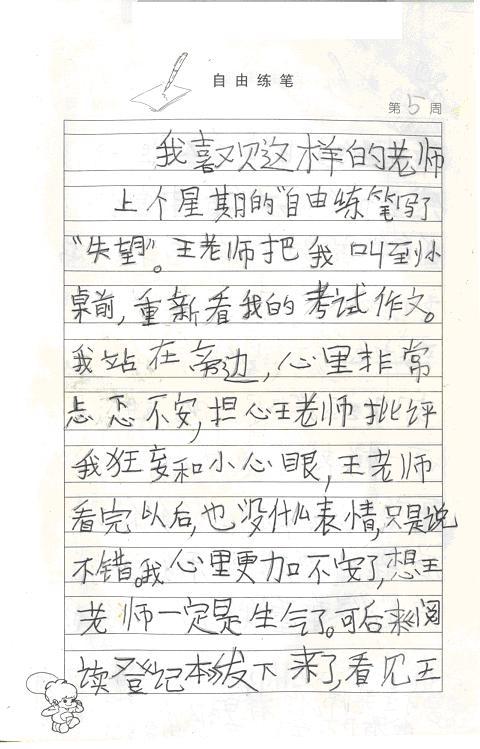 自由练笔
第5周
我喜欢这样的老师
上个星期的“自由练笔写了
“失望”。王老师把我叫到小
桌前，重新看我的考试作文。
我站在旁边，心里非常
忐忑不安，担心王老师批评
我狂妄和小心眼，王老师
看完以后，也没什么表情，只是说
不错。我心里更加不安了，想王
老师一定是生气了。可后来阅
读登记本发下来了，看见王